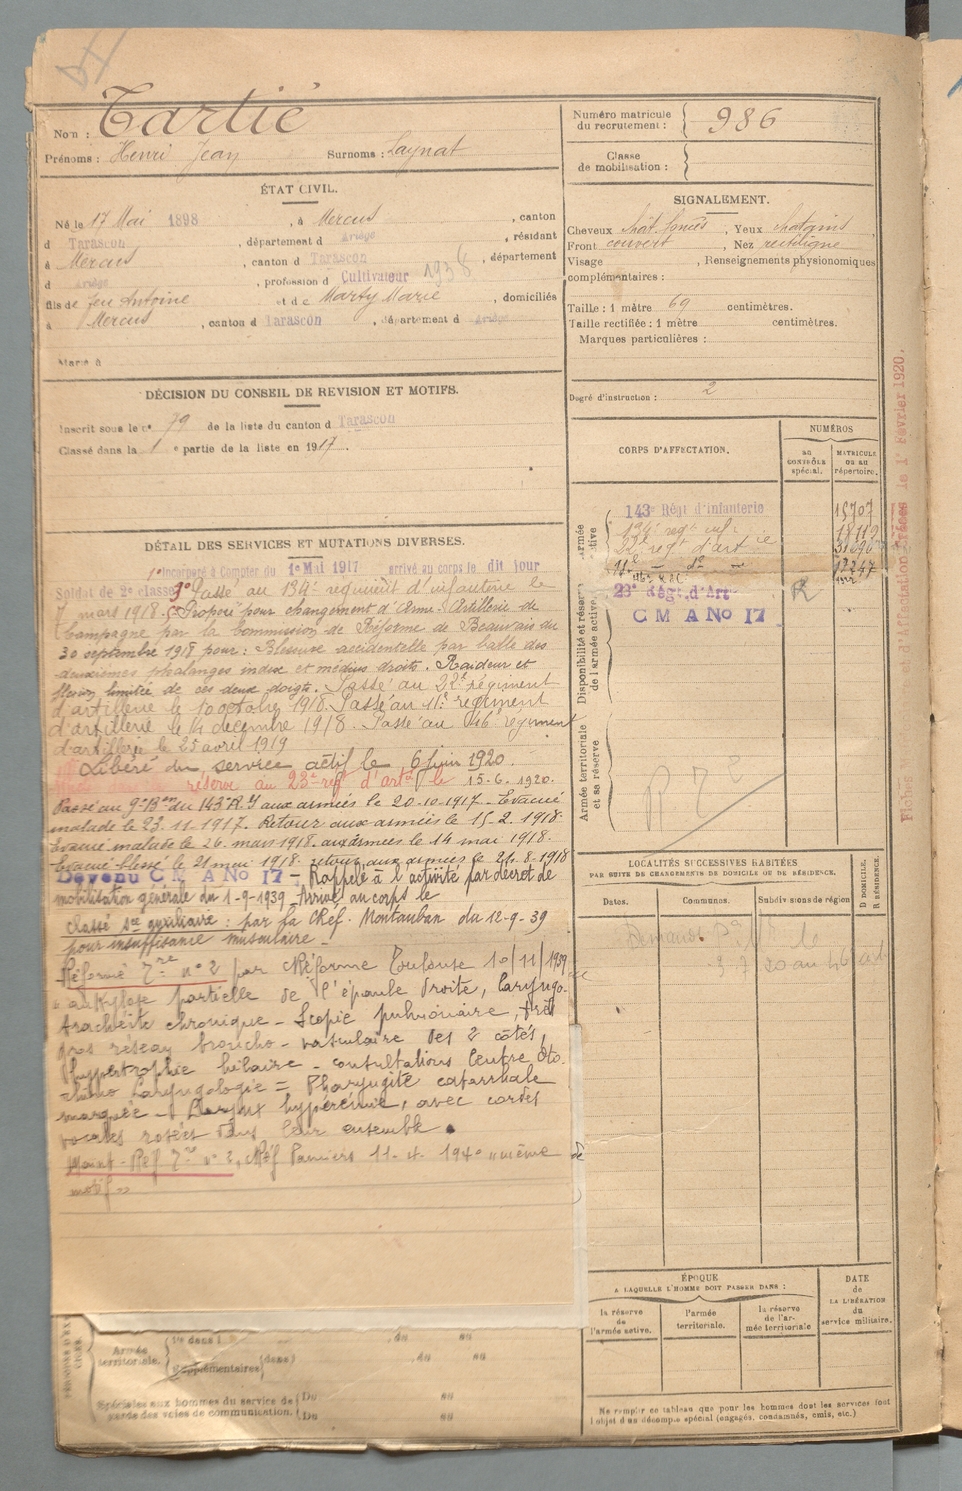 Nom : Tartié
Prénoms : Henri Jean Surnoms : Laynat
Numéro matricule du recrutement : 986
Classe de mobilisation :
ÉTAT CIVIL.
Né le 17 Mai 1898, à Mercus, canton
d Tarascon, département d Ariège, résidant
à Mercus, canton d Tarascon, département
d Ariège, profession d Cultivateur 1938
fils de feu Antoine et de Marty Marie, domiciliés
à Mercus, canton d Tarascon, département d Ariège
Marié à
SIGNALEMENT.
Cheveux chât. foncés, Yeux chatains,
Front couvert, Nez rectiligne
Visage , Renseignements physionomiques
complémentaires :
Taille : 1 mètre 69 centimètres.
Taille rectifiée : 1 mètre centimètres.
Marques particulières :
Degré d'instruction : 2
DÉCISION DU CONSEIL DE REVISION ET MOTIFS.
Inscrit sous le n° 79 de la liste du canton d Tarascon
Classé dans la 1e partie de la liste en 1917.
DÉTAIL DES SERVICES ET MUTATIONS DIVERSES.
1° Incorporé à Compter du 1er Mai 1917 arrivé au corps le dit jour
Soldat de 2e classe. Passé au 134e régiment d'infanterie le
7 mars 1918. Proposé pour changement d'Arme. Artillerie de
Campagne par la Commission de Réforme de Beauvais du
30 septembre 1918 pour : Blessure accidentelle par balle des
deuxièmes phalanges index et médius droits. Raideur et
flexion limitée de ces deux doigts. Passé au 22e régiment
d'artillerie le 10 octobre 1918. Passé au 11e régiment
d'artillerie le 14 décembre 1918. Passé au 46e régiment
d'artillerie le 25 avril 1919
Libéré du service actif le 6 juin 1920.
réserve au 23e rég d'artie le 15-6-1920.
Passé au 9e Bon du 143 R.I aux armées le 20-10-1917. Evacué
malade le 23-11-1917. Retour aux armées le 15-2-1918.
Evacué malade le 26 mars 1918. aux armées le 14 mai 1918.
Evacué blessé le 21 mai 1918. retour aux armées le 21-8-1918
Devenu C M A No 17 - Rappelé à l'activité par décret de
mobilisation générale du 1-9-1939. Arrivé au corps le
Classé sce auxiliaire : par la Cref. Montauban du 12-9-39
pour insuffisance musculaire.
Réformé Tre n° 2 par Créforme Toulouse 10/11/1939
ankylose partielle de l'épaule droite, laryngo-
trachéite chronique - Scopie pulmonaire, très
gros réseau broncho-vasculaire des 2 côtés,
hypertrophie hilaire - consultations Centre Oto-
rhino Laryngologie = Pharyngite catarrhale
marquée - Larynx hyperémié, avec cordes
vocales rosées dans leur ensemble.
Maint. Réf Tre n° 2, Créf Pamiers 11-4-1940 "même
motif"
CORPS D'AFFECTATION.
NUMÉROS
AU CONTRÔLE spécial.
MATRICULE OU AU répertoire.
Armée active
143e Régt d'Infanterie 15707
134e regt inf. 18119
22e regt d'artie
11e - de - 12247
23e Régt d'Art R
C M A No 17
Disponibilité et réserve de l'armée active
Armée territoriale et sa réserve
LOCALITÉS SUCCESSIVES HABITÉES
PAR SUITE DE CHANGEMENTS DE DOMICILE OU DE RÉSIDENCE.
Dates. Communes. Subdivisions de région
D DOMICILE. R RÉSIDENCE.
ÉPOQUE
A LAQUELLE L'HOMME DOIT PASSER DANS :
la réserve de l'armée active.
l'armée territoriale.
la réserve de l'armée territoriale
DATE de LA LIBÉRATION du service militaire.
Ne remplir ce tableau que pour les hommes dont les services font
l'objet d'un décompte spécial (engagés, condamnés, omis, etc.)
Armée territoriale. (1re dans) , du au
Supplémentaires (dans) , du au
Spéciales aux hommes du service de garde des voies de communication. Du au
Du au